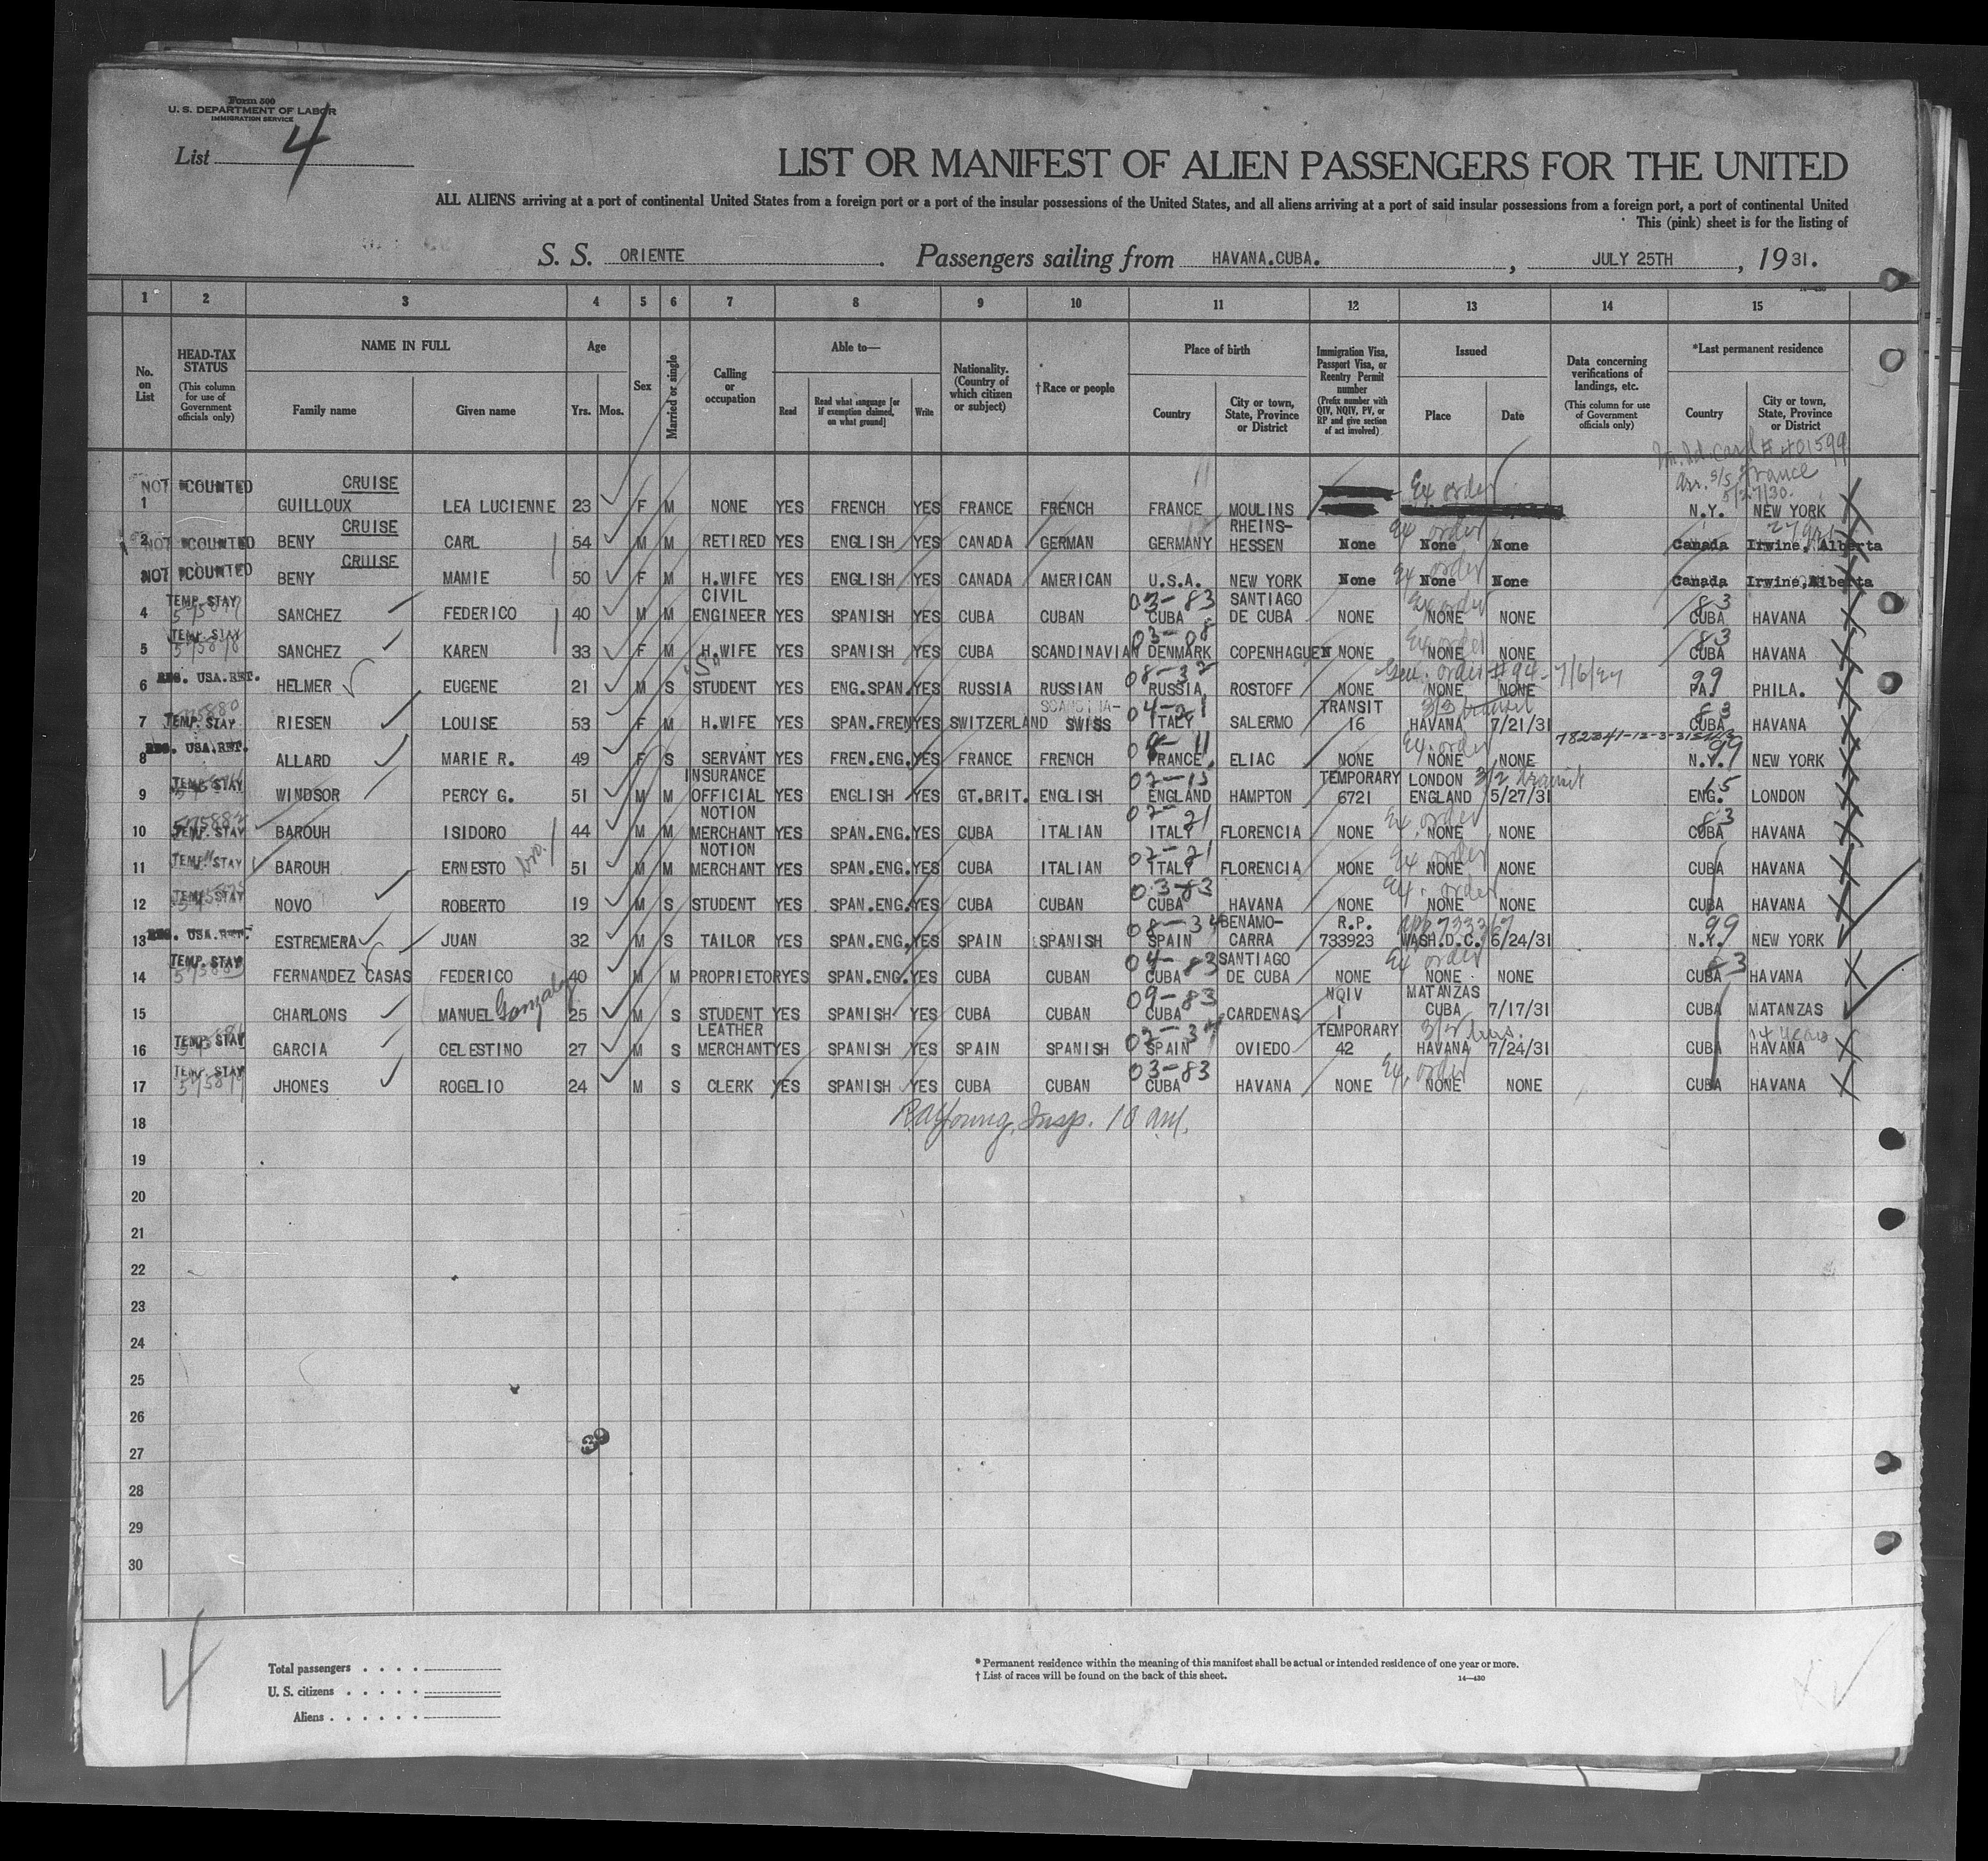 Form 500
U. S. DEPARTMENT OF LABOR
IMMIGRATION SERVICE
List 4
LIST OR MANIFEST OF ALIEN PASSENGERS FOR THE UNITED
ALL ALIENS arriving at a port of continental United States from a foreign port or a port of the insular possessions of the United States, and all aliens arriving at a port of said insular possessions from a foreign port, a port of continental United
This (pink) sheet is for the listing of
S. S. ORIENTE . Passengers sailing from HAVANA.CUBA. , JULY 25TH , 1931.
1 2 3 4 5 6 7 8 9 10 11 12 13 14 15
No. on List
HEAD-TAX STATUS (This column for use of Government officials only)
NAME IN FULL Family name Given name
Age Yrs. Mos.
Sex
Married or single
Calling or occupation
Able to— Read Read what language [or if exemption claimed, on what ground] Write
Nationality. (Country of which citizen or subject)
†Race or people
Place of birth Country City or town, State, Province or District
Immigration Visa, Passport Visa, or Reentry Permit number (Prefix number with QIV, NQIV, PV, or RP and give section of act involved)
Issued Place Date
Data concerning verifications of landings, etc. (This column for use of Government officials only)
*Last permanent residence Country City or town, State, Province or District
Arr. S/S France
5/27/30.
NOT COUNTED CRUISE Ex order
1 GUILLOUX LEA LUCIENNE 23 F M NONE YES FRENCH YES FRANCE FRENCH FRANCE MOULINS N.Y. NEW YORK
CRUISE RHEINS- Ex order
2 NOT COUNTED BENY CARL 54 M M RETIRED YES ENGLISH YES CANADA GERMAN GERMANY HESSEN None None None Canada Irwine, Alberta
CRUISE Ex order
NOT COUNTED BENY MAMIE 50 F M H.WIFE YES ENGLISH YES CANADA AMERICAN U.S.A. NEW YORK None None None Canada Irwine, Alberta
TEMP. STAY CIVIL 03-83 SANTIAGO Ex order 83
4 SANCHEZ FEDERICO 40 M M ENGINEER YES SPANISH YES CUBA CUBAN CUBA DE CUBA NONE NONE NONE CUBA HAVANA
TEMP. STAY 03-08 Ex order 83
5 SANCHEZ KAREN 33 F M H.WIFE YES SPANISH YES CUBA SCANDINAVIAN DENMARK COPENHAGUEN NONE NONE NONE CUBA HAVANA
REG. USA.RET. "S" 08-32 Gen. order #94- 7/6/27 99
6 HELMER EUGENE 21 M S STUDENT YES ENG.SPAN. YES RUSSIA RUSSIAN RUSSIA ROSTOFF NONE NONE NONE PA. PHILA.
TEMP. STAY 04-21 TRANSIT 83
7 RIESEN LOUISE 53 F M H.WIFE YES SPAN.FREN YES SWITZERLAND SWISS ITALY SALERMO 16 HAVANA 7/21/31 CUBA HAVANA
REG. USA.RET. Ex. order 99
8 ALLARD MARIE R. 49 F S SERVANT YES FREN.ENG. YES FRANCE FRENCH FRANCE ELIAC NONE NONE NONE N.Y. NEW YORK
TEMP. STAY INSURANCE TEMPORARY LONDON 3/2 transit 15
9 WINDSOR PERCY G. 51 M M OFFICIAL YES ENGLISH YES GT.BRIT. ENGLISH ENGLAND HAMPTON 6721 ENGLAND 5/27/31 ENG. LONDON
NOTION 02-21 Ex. order 83
10 TEMP. STAY BAROUH ISIDORO 44 M M MERCHANT YES SPAN.ENG. YES CUBA ITALIAN ITALY FLORENCIA NONE NONE NONE CUBA HAVANA
TEMP. STAY bro. NOTION 02-21 Ex order
11 BAROUH ERNESTO 51 M M MERCHANT YES SPAN.ENG. YES CUBA ITALIAN ITALY FLORENCIA NONE NONE NONE CUBA HAVANA
TEMP. STAY 03-83 Ex. order
12 NOVO ROBERTO 19 M S STUDENT YES SPAN.ENG. YES CUBA CUBAN CUBA HAVANA NONE NONE NONE CUBA HAVANA
REG. USA.RET. 08-34 BENAMO- R.P. 99
13 ESTREMERA JUAN 32 M S TAILOR YES SPAN.ENG. YES SPAIN SPANISH SPAIN CARRA 733923 WASH.D.C. 6/24/31 N.Y. NEW YORK
TEMP. STAY 04-83 SANTIAGO Ex order 83
14 FERNANDEZ CASAS FEDERICO 40 M M PROPRIETOR YES SPAN.ENG. YES CUBA CUBAN CUBA DE CUBA NONE NONE NONE CUBA HAVANA
09-83 NQIV MATANZAS
15 CHARLONS MANUEL Gonzalez 25 M S STUDENT YES SPANISH YES CUBA CUBAN CUBA CARDENAS 1 CUBA 7/17/31 CUBA MATANZAS
TEMP. STAY LEATHER TEMPORARY 14 years
16 GARCIA CELESTINO 27 M S MERCHANT YES SPANISH YES SPAIN SPANISH SPAIN OVIEDO 42 HAVANA 7/24/31 CUBA HAVANA
TEMP. STAY 03-83 Ex. order
17 JHONES ROGELIO 24 M S CLERK YES SPANISH YES CUBA CUBAN CUBA HAVANA NONE NONE NONE CUBA HAVANA
18 Insp. 10 am.
19
20
21
22
23
24
25
26
39
27
28
29
30
4
Total passengers
U. S. citizens
Aliens
* Permanent residence within the meaning of this manifest shall be actual or intended residence of one year or more.
† List of races will be found on the back of this sheet.
14—430